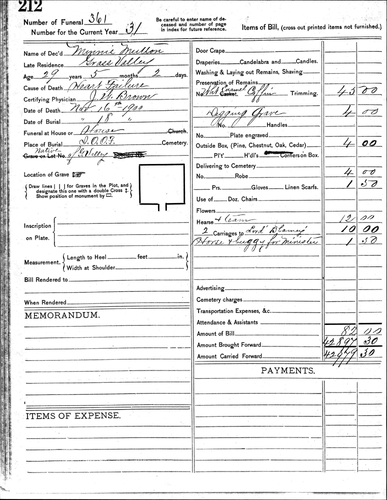 212
Number of Funeral 361
Number for the Current Year 31
Be careful to enter name of deceased and number of page in index for future reference.
Items of Bill, (cross out printed items not furnished.)
Name of Dec'd Minnie Mutton
Late Residence Grass Valley
Age 29 years 5 months 2 days.
Cause of Death Heart Failure
Certifying Physician J. H. Brown
Date of Death Nov 16th 1900
Date of Burial " 18 "
Funeral at House or House Church.
Place of Burial I.O.O.F. Cemetery.
Native
Grave or Lot No. G Valley
Location of Grave
Draw lines ( ) for Graves in the Plot, and designate this one with a double Cross
Show position of monument by
Inscription on Plate.
Measurement. Length to Heel feet in.
Width at Shoulder
Bill Rendered to
When Rendered
MEMORANDUM.
ITEMS OF EXPENSE.
Door Crape
Draperies Candelabra and Candles.
Washing & Laying out Remains, Shaving
Preservation of Remains
No. Coffin Trimming. 45 00
Digging Grave 4 00
No. Handles
Plate engraved
Outside Box, (Pine, Chestnut, Oak, Cedar) 4 00
PIY H'd's on Box.
Delivering to Cemetery 4 00
No. Robe 4 00
Prs. Gloves Linen Scarfs. 1 50
Use of Doz. Chairs
Flowers
Hearse & team 12 00
2 Carriages to 10 00
Horse & buggy for Minister 1 50
Advertising
Cemetery charges
Transportation Expenses, &c.
Attendance & Assistants
Amount of Bill 82 00
Amount Brought Forward 42897 30
Amount Carried Forward 42979 30
PAYMENTS.